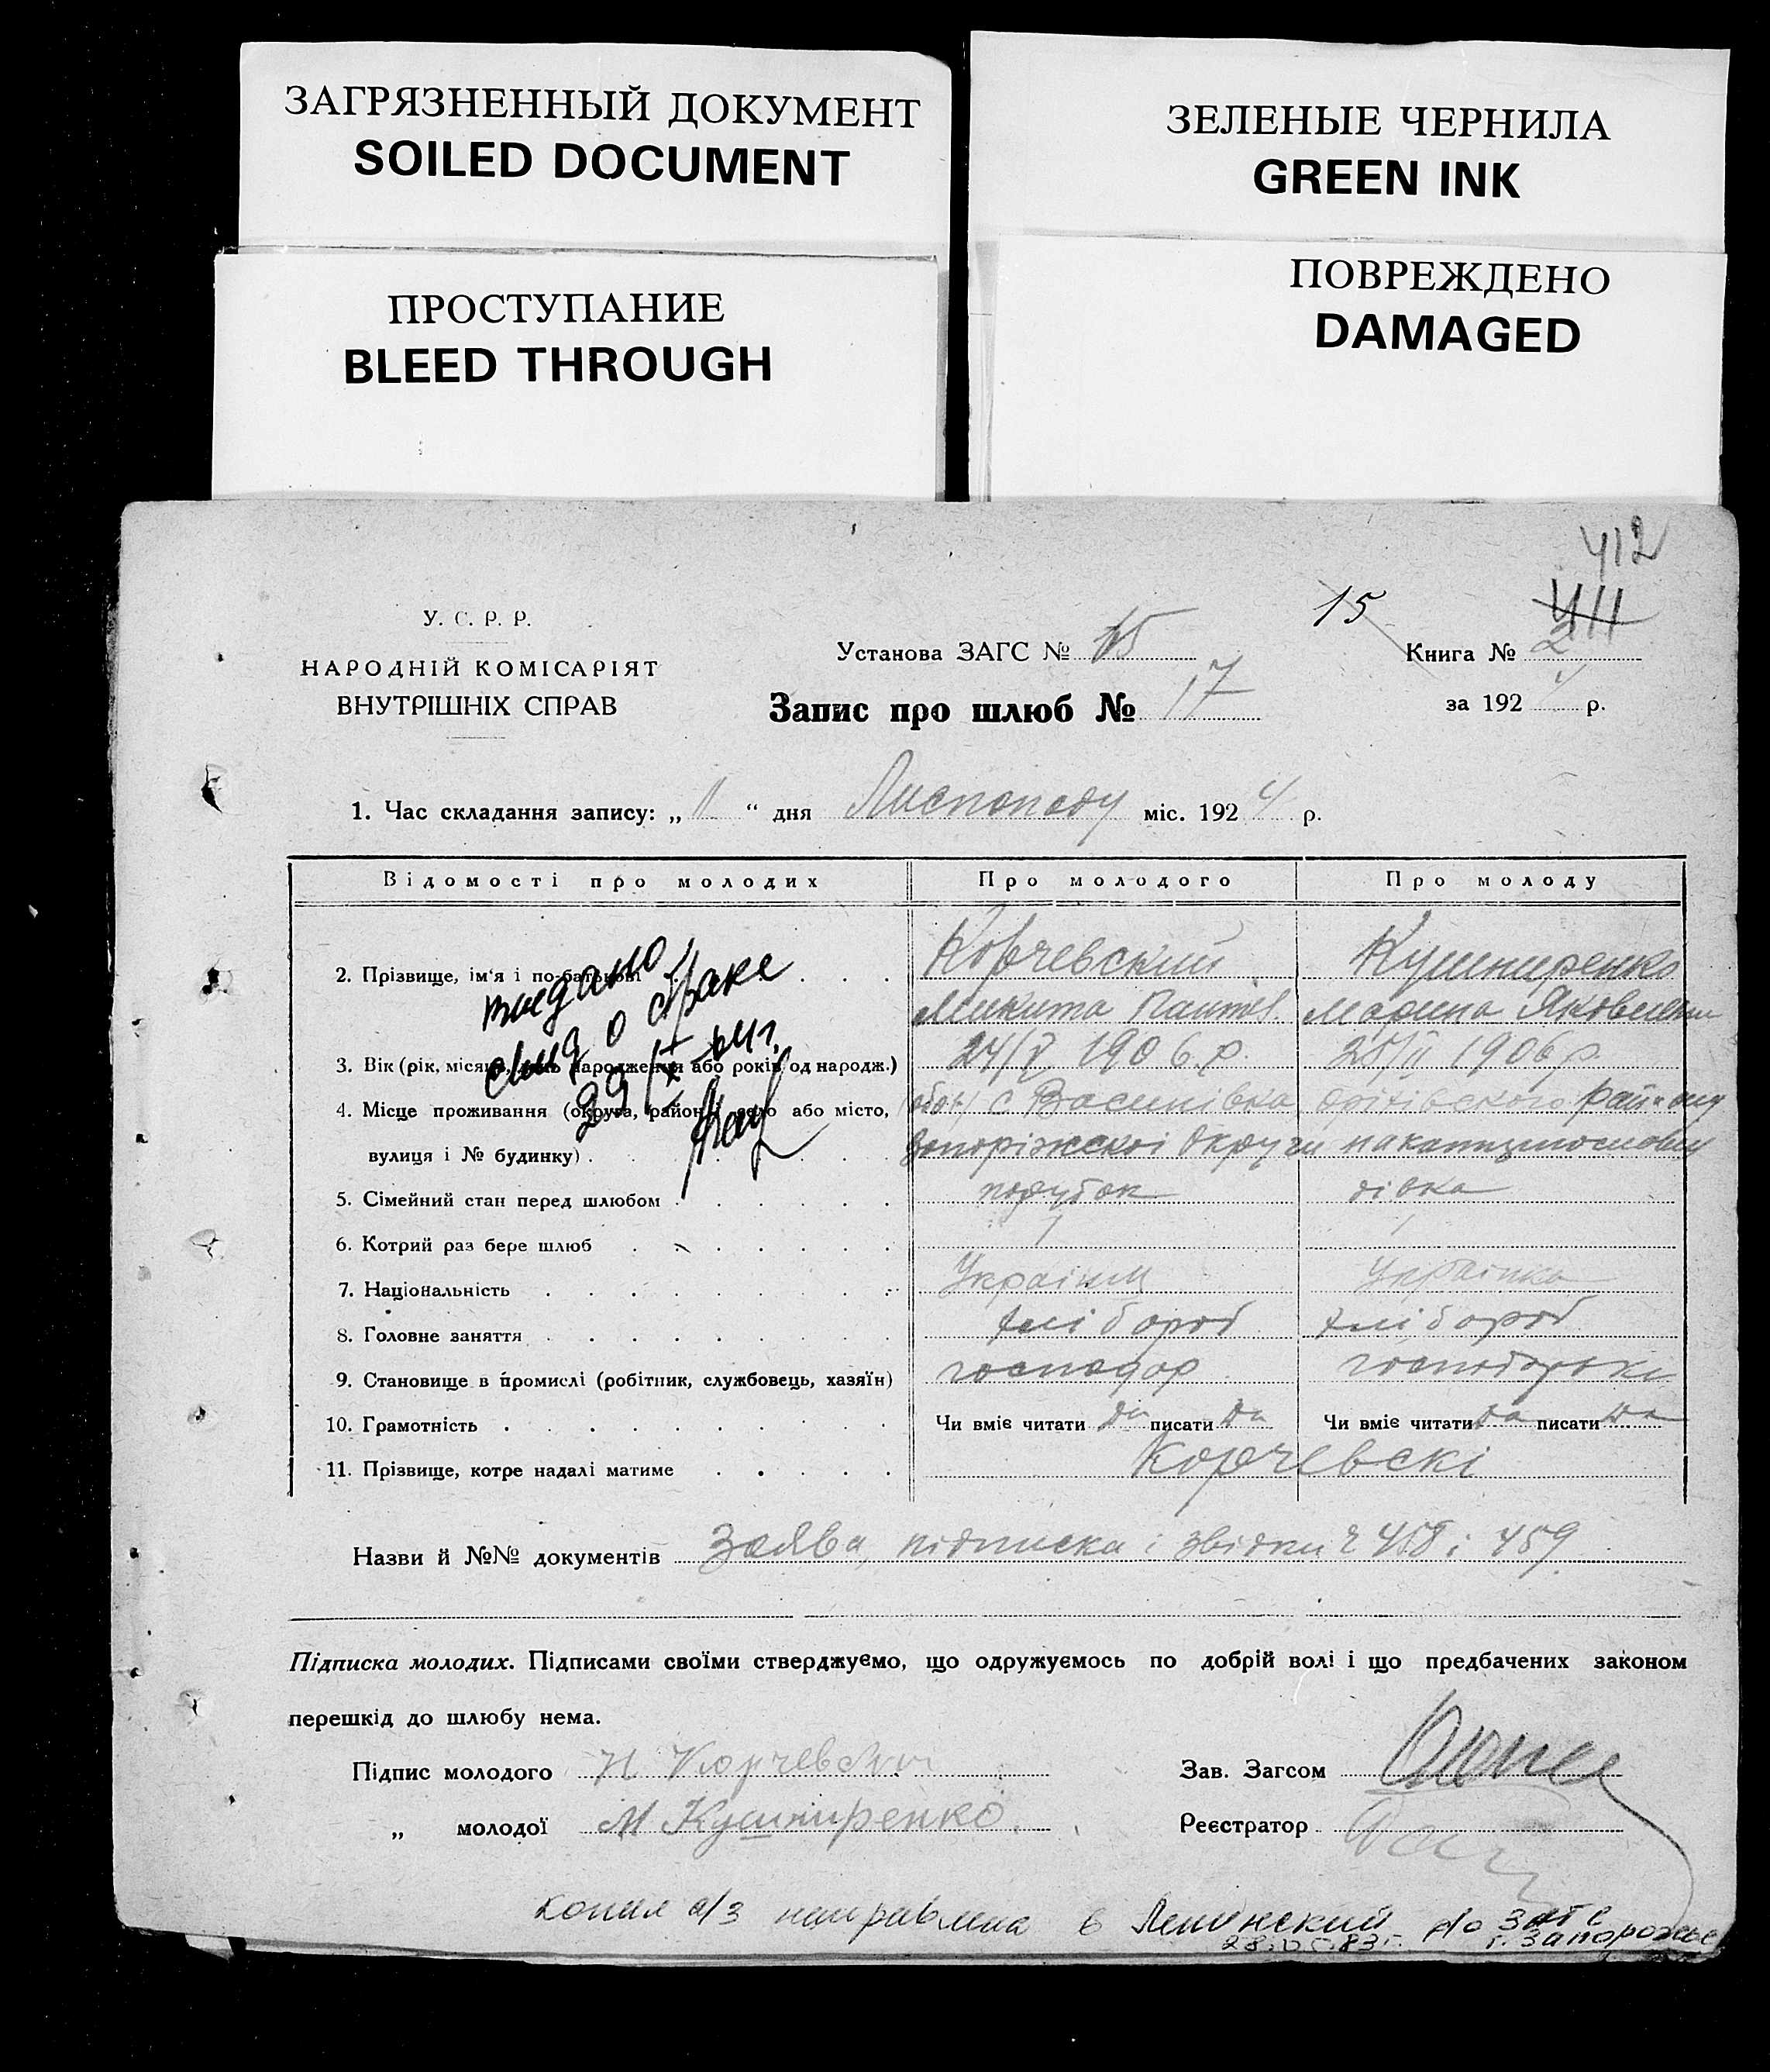 ЗАГРЯЗНЕННЫЙ ДОКУМЕНТ
SOILED DOCUMENT
ЗЕЛЕНЫЕ ЧЕРНИЛА
GREEN INK
ПРОСТУПАНИЕ
BLEED THROUGH
ПОВРЕЖДЕНО
DAMAGED
412
У. С. Р. Р.
НАРОДНІЙ КОМІСАРІЯТ
ВНУТРІШНІХ СПРАВ
Установа ЗАГС № 15
15
411
Книга № 2
Запис про шлюб № 17
за 1924 р.
1. Час складання запису: „11“ дня Листопаду міс. 1924 р.
Відомості про молодих Про молодого Про молоду
2. Прізвище, ім'я і по-батькові Корчевский Кушниренко
Микита Марина Яковлевна
3. Вік (рік, місяць, день народження або років од народж.) 24/V 1906 р. 28/II 1906 р.
4. Місце проживання (округа, район, село або місто, с Василівка Оріхівского району
вулиця і № будинку) Запоріжскоі Округи
5. Сімейний стан перед шлюбом парубок дівка
6. Котрий раз бере шлюб 1 1
7. Національність Украінец Украінка
8. Головне заняття хлібороб хлібороб
9. Становище в промислі (робітник, службовець, хазяїн) господар господарка
10. Грамотність Чи вміє читати да писати да Чи вміє читати да писати да
11. Прізвище, котре надалі матиме Корчевскі
выдано
свид о браке
Назви й №№ документів Заява, підписка і звідки ч 458 і 459
Підписка молодих. Підписами своїми стверджуємо, що одружуємось по добрій волі і що предбачених законом
перешкід до шлюбу нема.
Підпис молодого Н Корчевский Зав. Загсом
„ молодої М Кушниренко Реєстратор
копия а/з направлена в Ленинский р/о ЗАГС
г. Запорожье